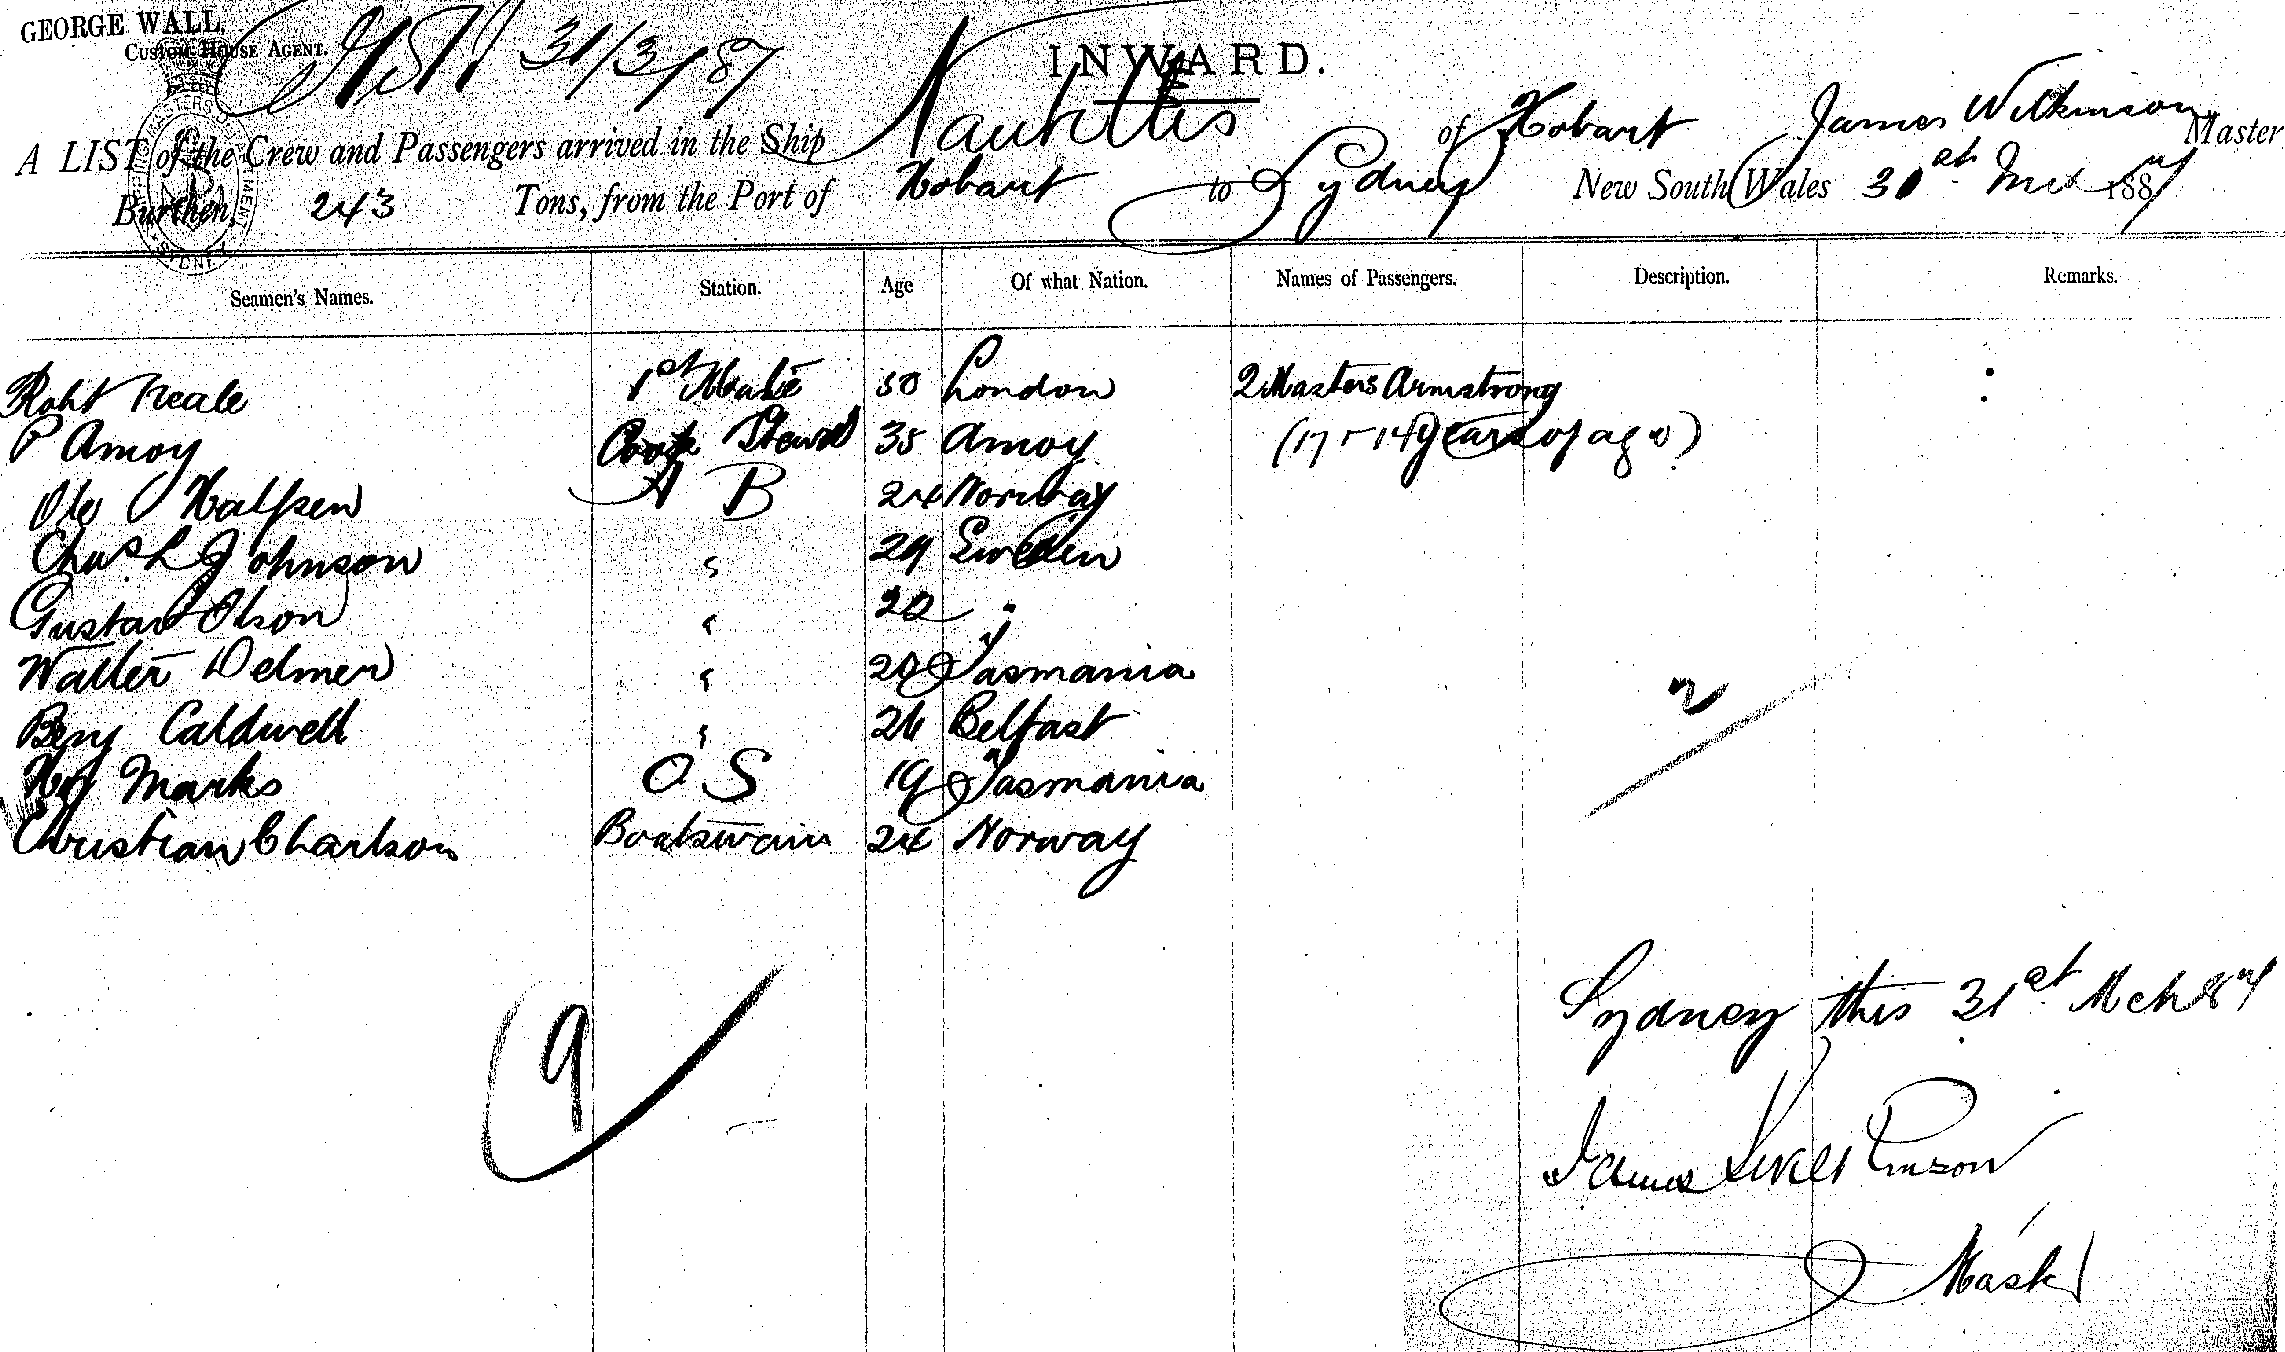 GEORGE WALL,
CUSTOM HOUSE AGENT.
31/3/87
INWARD.
A LIST of the Crew and Passengers arrived in the Ship Nautilus of Hobart James Wilkinson Master
Burthen, 243 Tons, from the Port of Hobart to Sydney New South Wales 31st Mch 1887
Seamen's Names. Station. Age Of what Nation. Names of Passengers. Description. Remarks.
Robt Neale 1st Mate 50 London 2 Masters Armstrong
P Amoy Cook Steward 35 Amoy (17 & 14 years of age)
Ole Halfsen A B 24 Norway
Chas L Johnson " 29 Sweden
Gustav Olson " 20 "
Walter Delmer " 20 Tasmania
Benj Caldwell " 26 Belfast
Hy Marks O S 19 Tasmania
Christian Charlson Boatswain 24 Norway
2
9
Sydney this 31st Mch 87
James Wilkinson
Master